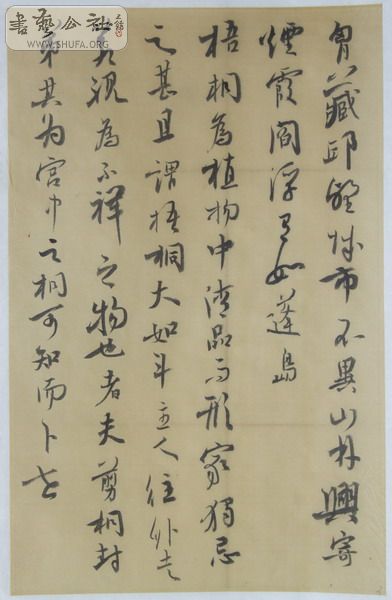 書藝公社
WWW.SHUFA.ORG
胷藏邱壑城市不異山林興寄
煙霞閻浮有如蓬島
梧桐為植物中清品而形家獨忌
之甚且謂梧桐大如斗主人往外走
若竟視為不祥之物也者夫剪桐封
弟其為宮中之桐可知而卜世